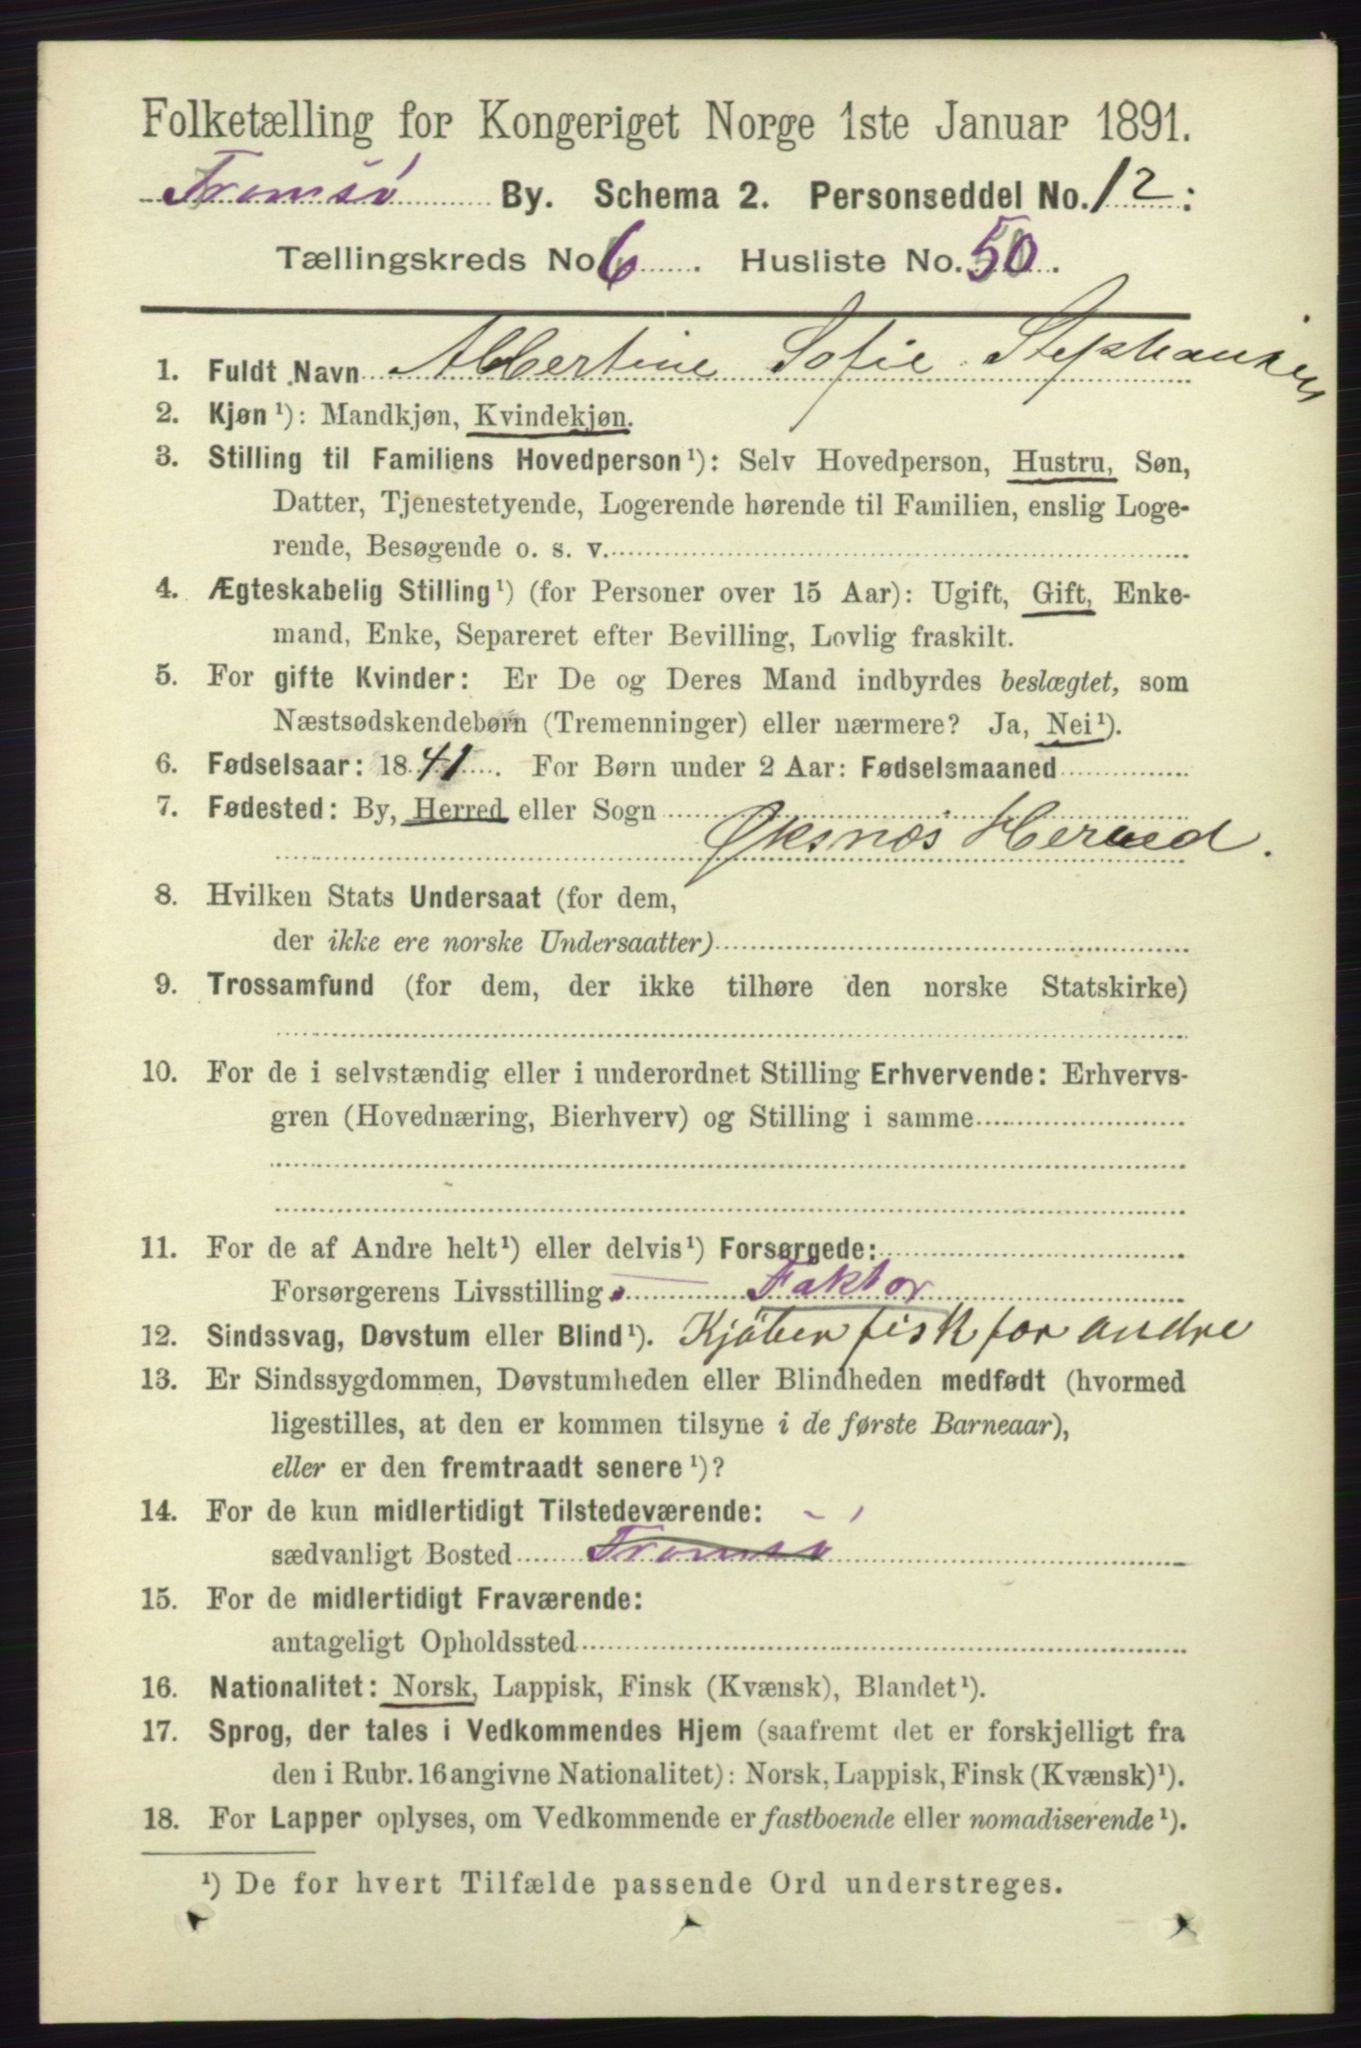 Folketælling for Kongeriget Norge 1ste Januar 1891.
Tromsø By. Schema 2. Personseddel No. 12:
Tællingskreds No 6. Husliste No. 50.
1. Fuldt Navn Albertine Sofie Stephansen
2. Kjøn ¹): Mandkjøn, Kvindekjøn.
3. Stilling til Familiens Hovedperson¹): Selv Hovedperson, Hustru, Søn,
Datter, Tjenestetyende, Logerende hørende til Familien, enslig Loge-
rende, Besøgende o. s. v.
4. Ægteskabelig Stilling¹) (for Personer over 15 Aar): Ugift, Gift, Enke-
mand, Enke, Separeret efter Bevilling, Lovlig fraskilt.
5. For gifte Kvinder: Er De og Deres Mand indbyrdes beslægtet, som
Næstsødskendebørn (Tremenninger) eller nærmere? Ja, Nei¹).
6. Fødselsaar: 1841. For Børn under 2 Aar: Fødselsmaaned
7. Fødested: By, Herred eller Sogn
Øksnæs Herred.
8. Hvilken Stats Undersaat (for dem,
der ikke ere norske Undersaatter)
9. Trossamfund (for dem, der ikke tilhøre den norske Statskirke)
10. For de i selvstændig eller i underordnet Stilling Erhvervende: Erhvervs-
gren (Hovednæring, Bierhverv) og Stilling i samme
11. For de af Andre helt¹) eller delvis¹) Forsørgede:
Forsørgerens Livsstilling Faktor
12. Sindssvag, Døvstum eller Blind¹). Kjöber fisk for andre
13. Er Sindssygdommen, Døvstumheden eller Blindheden medfødt (hvormed
ligestilles, at den er kommen tilsyne i de første Barneaar),
eller er den fremtraadt senere ¹)?
14. For de kun midlertidigt Tilstedeværende:
sædvanligt Bosted Tromsø
15. For de midlertidigt Fraværende:
antageligt Opholdssted
16. Nationalitet: Norsk, Lappisk, Finsk (Kvænsk), Blandet¹).
17. Sprog, der tales i Vedkommendes Hjem (saafremt det er forskjelligt fra
den i Rubr. 16 angivne Nationalitet): Norsk, Lappisk, Finsk (Kvænsk)¹).
18. For Lapper oplyses, om Vedkommende er fastboende eller nomadiserende¹).
¹) De for hvert Tilfælde passende Ord understreges.